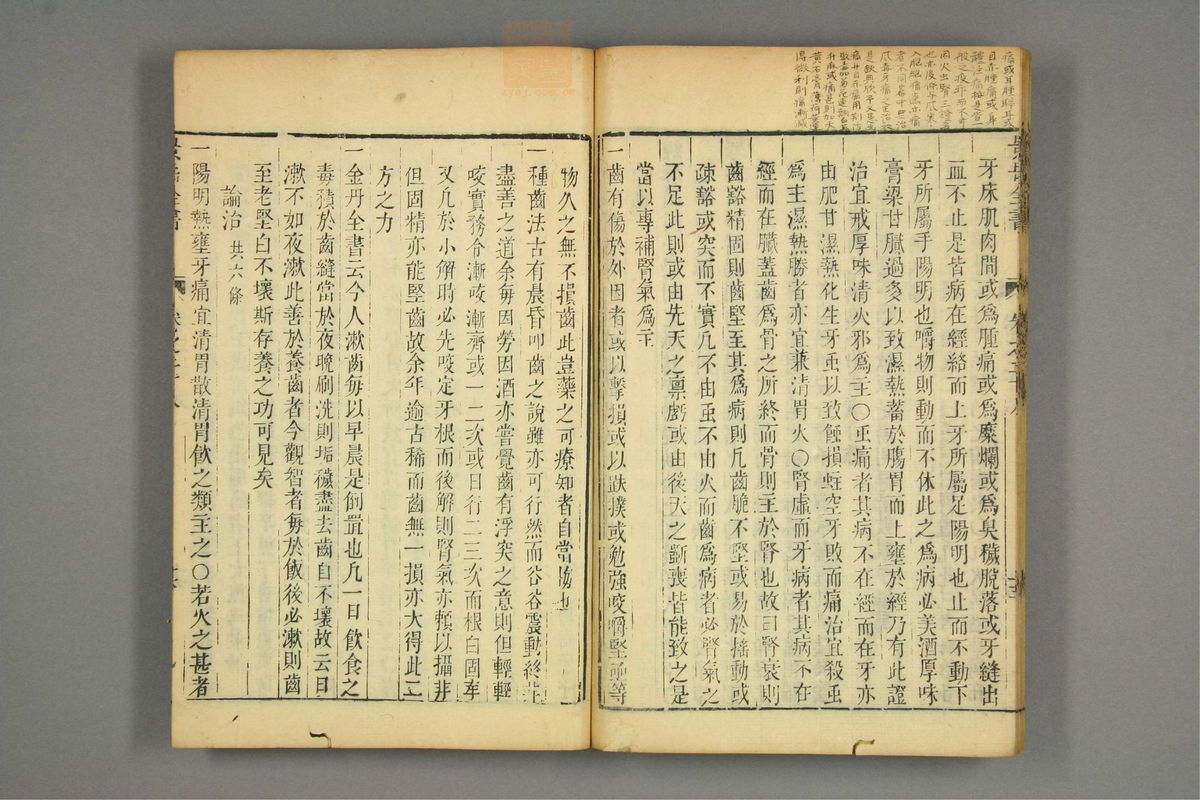 牙床肌肉間或爲腫痛或爲糜爛或爲臭穢脫落或牙縫出
血不止是皆病在經絡而上牙所屬足陽明也止而不動下
牙所屬手陽明也嚼物則動而不休此之爲病必美酒厚味
膏粱甘膩過多以致濕熱蓄於腸胃而上壅於經乃有此證
治宜戒厚味清火邪爲主○虫痛者其病不在經而在牙亦
由肥甘濕熱化生牙虫以致蝕損蛀空牙敗而痛治宜殺虫
爲主濕熱勝者亦宜兼清胃火○腎虛而牙病者其病不在
經而在臟蓋齒爲骨之所終而骨則主於腎也故曰腎衰則
齒豁精固則齒堅至其爲病則凡齒脆不堅或易於搖動或
疎豁或突而不實凡不由虫不由火而齒爲病者必腎氣之
不足此則或由先天之禀虧或由後天之斵喪皆能致之是
當以專補腎氣爲主
一齒有傷於外因者或以擊損或以跌撲或勉強咬嚼堅硬等
景岳全書
物久之無不損齒此豈藥之可療知者自當慎也
一種齒法古有晨昏叩齒之說雖亦可行然而谷谷震動終非
盡善之道余每因勞因酒亦嘗覺齒有浮突之意則但輕輕
咬實務令漸咬漸齊或一二次或日行二三次而根自固牢
又凡於小解時必先咬定牙根而後解則腎氣亦賴以攝非
但固精亦能堅齒故余年逾古稀而齒無一損亦大得此二
方之力
一金丹全書云今人漱齒每以早晨是倒置也凡一日飲食之
毒積於齒縫當於夜晚刷洗則垢穢盡去齒自不壞故云晨
漱不如夜漱此善於養齒者今觀智者每於飯後必漱則齒
至老堅白不壞斯存養之功可見矣
論治 共六條
一陽明熱壅牙痛宜清胃散清胃飲之類主之○若火之甚者
景岳全書